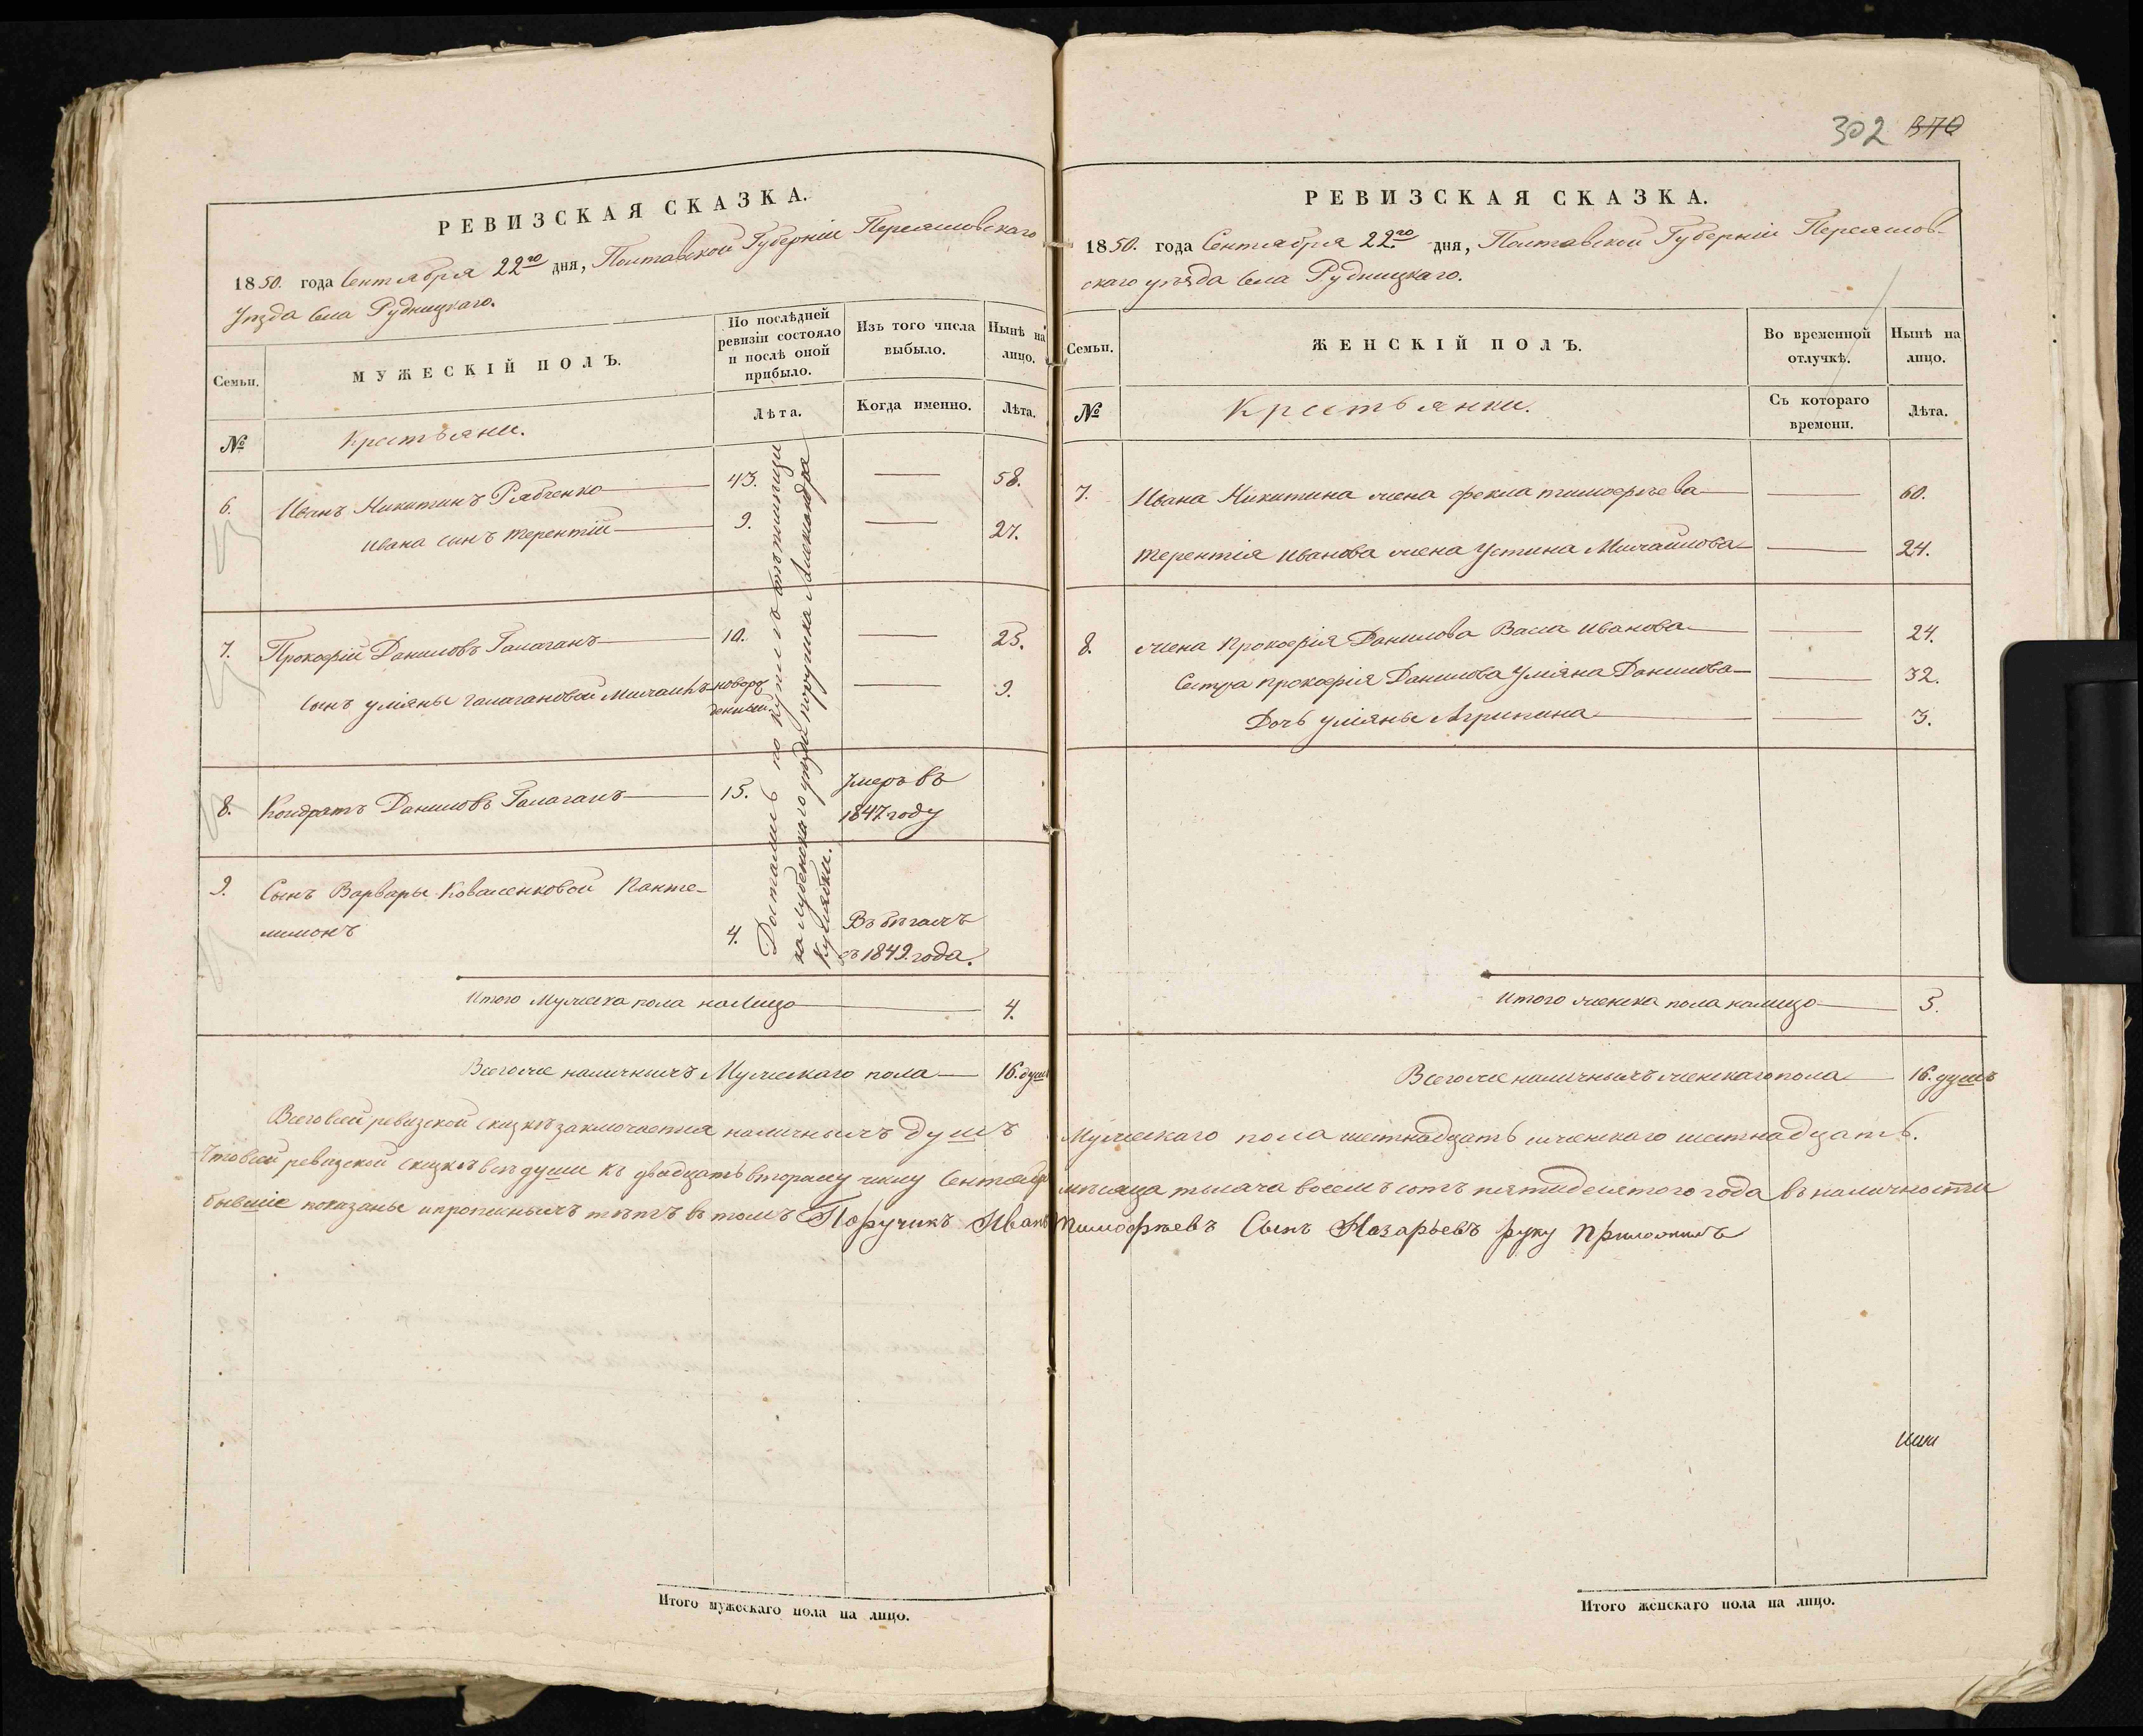 302 370
РЕВИЗСКАЯ СКАЗКА.
1850. года Сентября 22го дня, Полтавской Губерніи Переяславскаго
Уѣзда Села Рудницкаго.
Семьи.
МУЖЕСКІЙ ПОЛЪ.
По послѣдней ревизіи состояло и послѣ оной прибыло.
Изъ того числа выбыло.
Нынѣ на лицо.
№
Крестьяни.
Лѣта.
Когда именно.
Лѣта.
6. Иванъ Никитинъ Рябченко 43. 58.
Ивана сынъ Терентій 9. 24.
7. Прокофій Даниловъ Галаганъ 10. 25.
Сынъ Уліяны Галагановой Михаилъ новоро
жденный. 9.
8. Кондратъ Даниловъ Галаганъ 15. Умеръ въ
1847. году
9. Сынъ Варвары Коваленковой Панте-
лимонъ 4. Въ бѣгахъ
съ 1849. года.
Достались по купли отъ помѣщи
ка Лубенскаго уѣзда поручика Александра
Итого Мужеска пола на Лицо 4.
Всегоже наличныхъ Мужескаго пола 16. душъ
РЕВИЗСКАЯ СКАЗКА.
1850. года Сентября 22го дня, Полтавской Губерніи Переяслав-
скаго уѣзда Села Рудницкаго.
Семьи.
ЖЕНСКІЙ ПОЛЪ.
Во временной отлучкѣ.
Нынѣ на лицо.
№
Крестьянки.
Съ котораго времени.
Лѣта.
7. Ивана Никитина жена Фекла Тимофѣева 60.
Терентія Иванова жена Устина Михайлова 24.
8. Жена Прокофія Данилова Васа Иванова 24.
Сестра Прокофія Данилова Уліяна Данилова 32.
Дочь Уліяны Агрипина 3.
Итого женска пола налицо 5.
Всегоже наличныхъ женскаго пола 16. душъ
Всего въ сей ревизской сказкѣ заключается наличныхъ душъ Мужескаго пола шестнадцать и женскаго шестнадцать.
Что въ сей ревизской сказкѣ всѣ души къ двадцать второму числу Сентября мѣсяца тысяча восемъ сотъ пятидесятого года въ наличности
бывшіе показаны и прописныхъ нѣтъ въ томъ Поручикъ Иванъ Тимофѣевъ Сынъ Назарьевъ руку приложилъ
Итого мужескаго пола на лицо.
Итого женскаго пола на лицо.